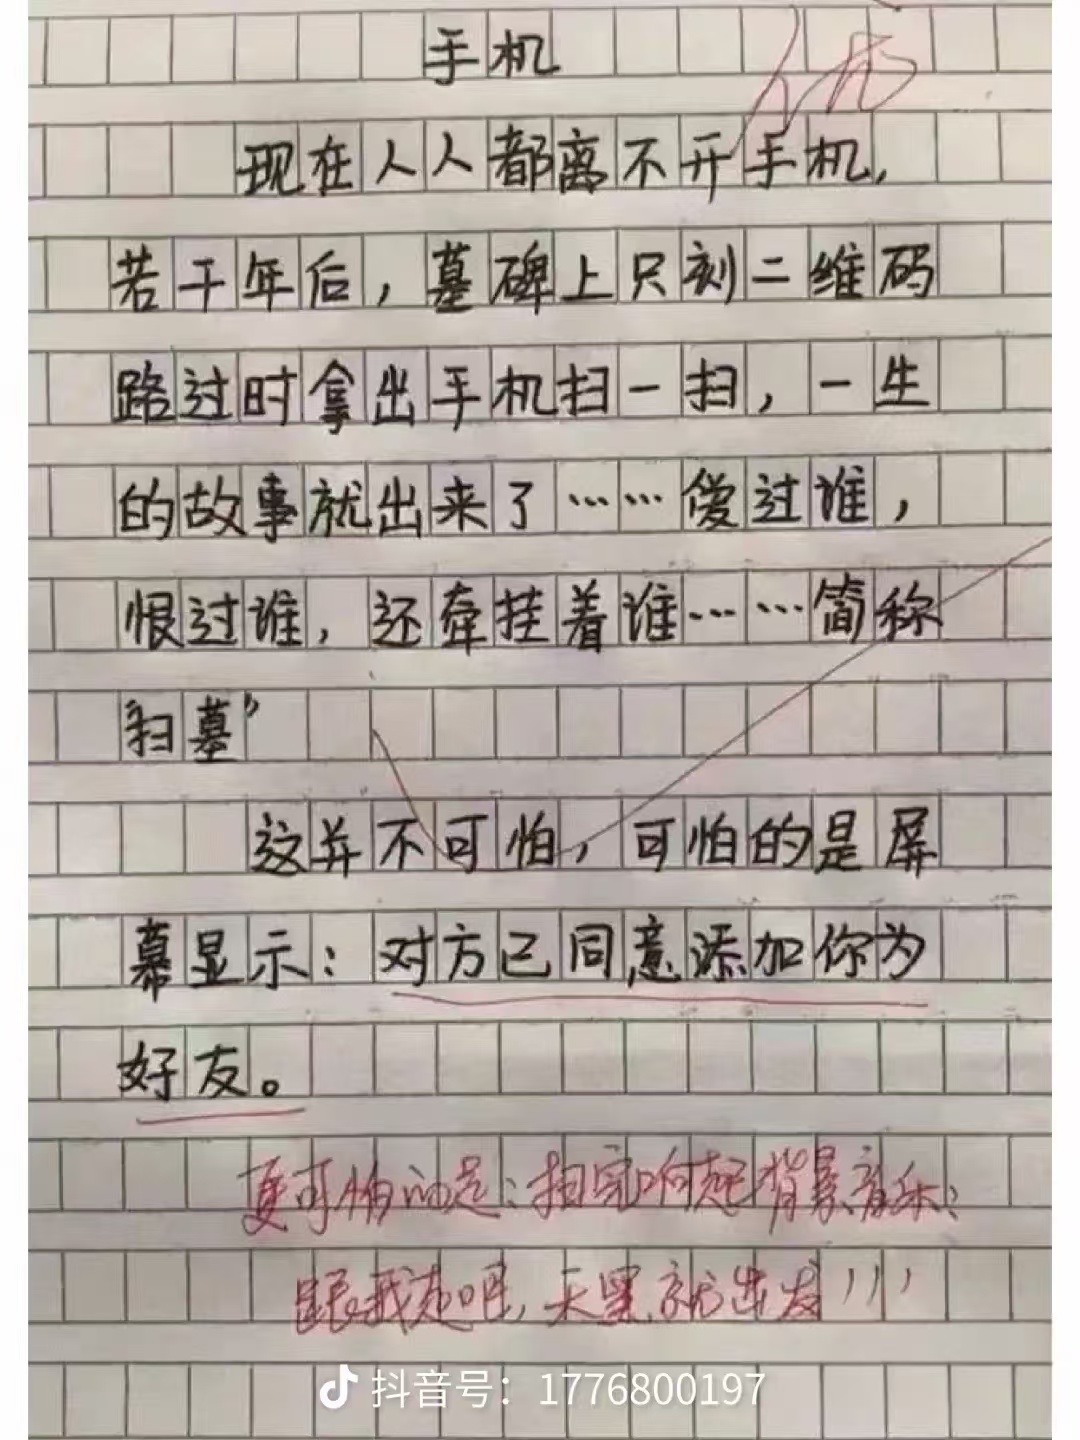 手机
现在人人都离不开手机，
若干年后，墓碑上只刻二维码
路过时拿出手机扫一扫，一生
的故事就出来了……爱过谁，
恨过谁，还牵挂着谁……简称
“扫墓”
这并不可怕，可怕的是屏
幕显示：对方已同意添加你为
好友。
更可怕的是：扫完响起背景音乐：
跟我走吧，天黑就出发！！！
抖音号：1776800197